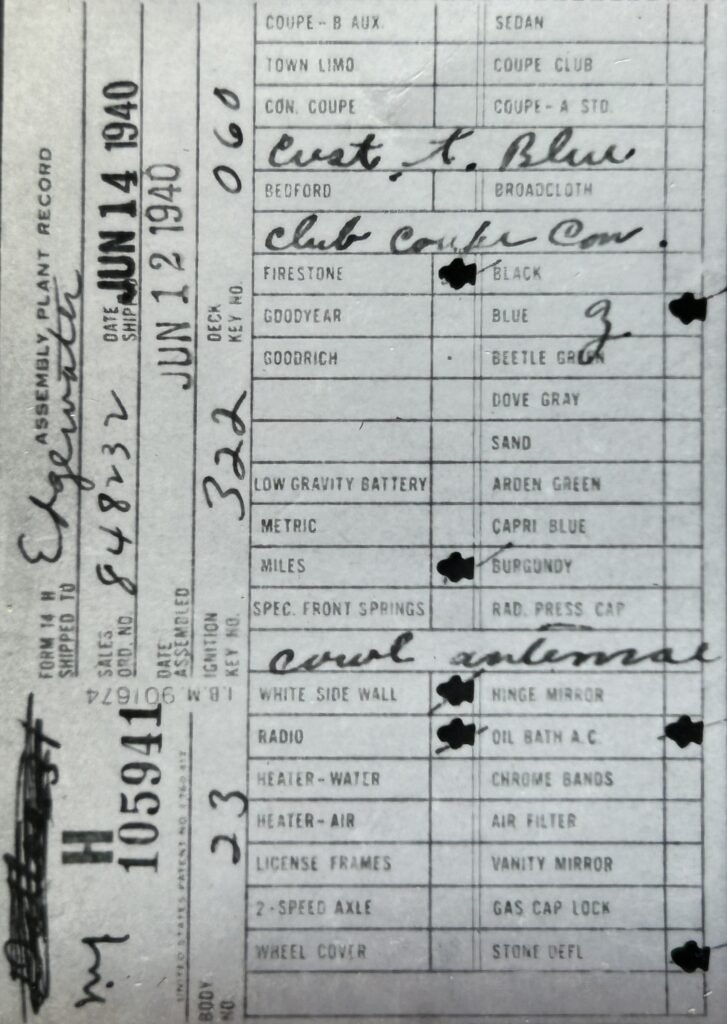 FORM 14 H ASSEMBLY PLANT RECORD
SHIPPED TO Edgewater
SALES ORD. NO. 848232 DATE SHIPPED JUN 14 1940
DATE ASSEMBLED JUN 12 1940
BODY NO. 23 IGNITION KEY NO. 322 DECK KEY NO. 060
ny
H
105941
I.B.M. 901674
COUPE-B AUX. SEDAN
TOWN LIMO. COUPE CLUB
CON. COUPE COUPE-A STD.
Cust. t. Blue
BEDFORD BROADCLOTH
club coupe Con.
FIRESTONE BLACK
GOODYEAR BLUE
GOODRICH BEETLE GREEN
DOVE GRAY
SAND
LOW GRAVITY BATTERY ARDEN GREEN
METRIC CAPRI BLUE
MILES BURGUNDY
SPEC. FRONT SPRINGS RAD. PRESS CAP
cowl antennae
WHITE SIDE WALL HINGE MIRROR
RADIO OIL BATH A.C.
HEATER-WATER CHROME BANDS
HEATER-AIR AIR FILTER
LICENSE FRAMES VANITY MIRROR
2-SPEED AXLE GAS CAP LOCK
WHEEL COVER STONE DEFL